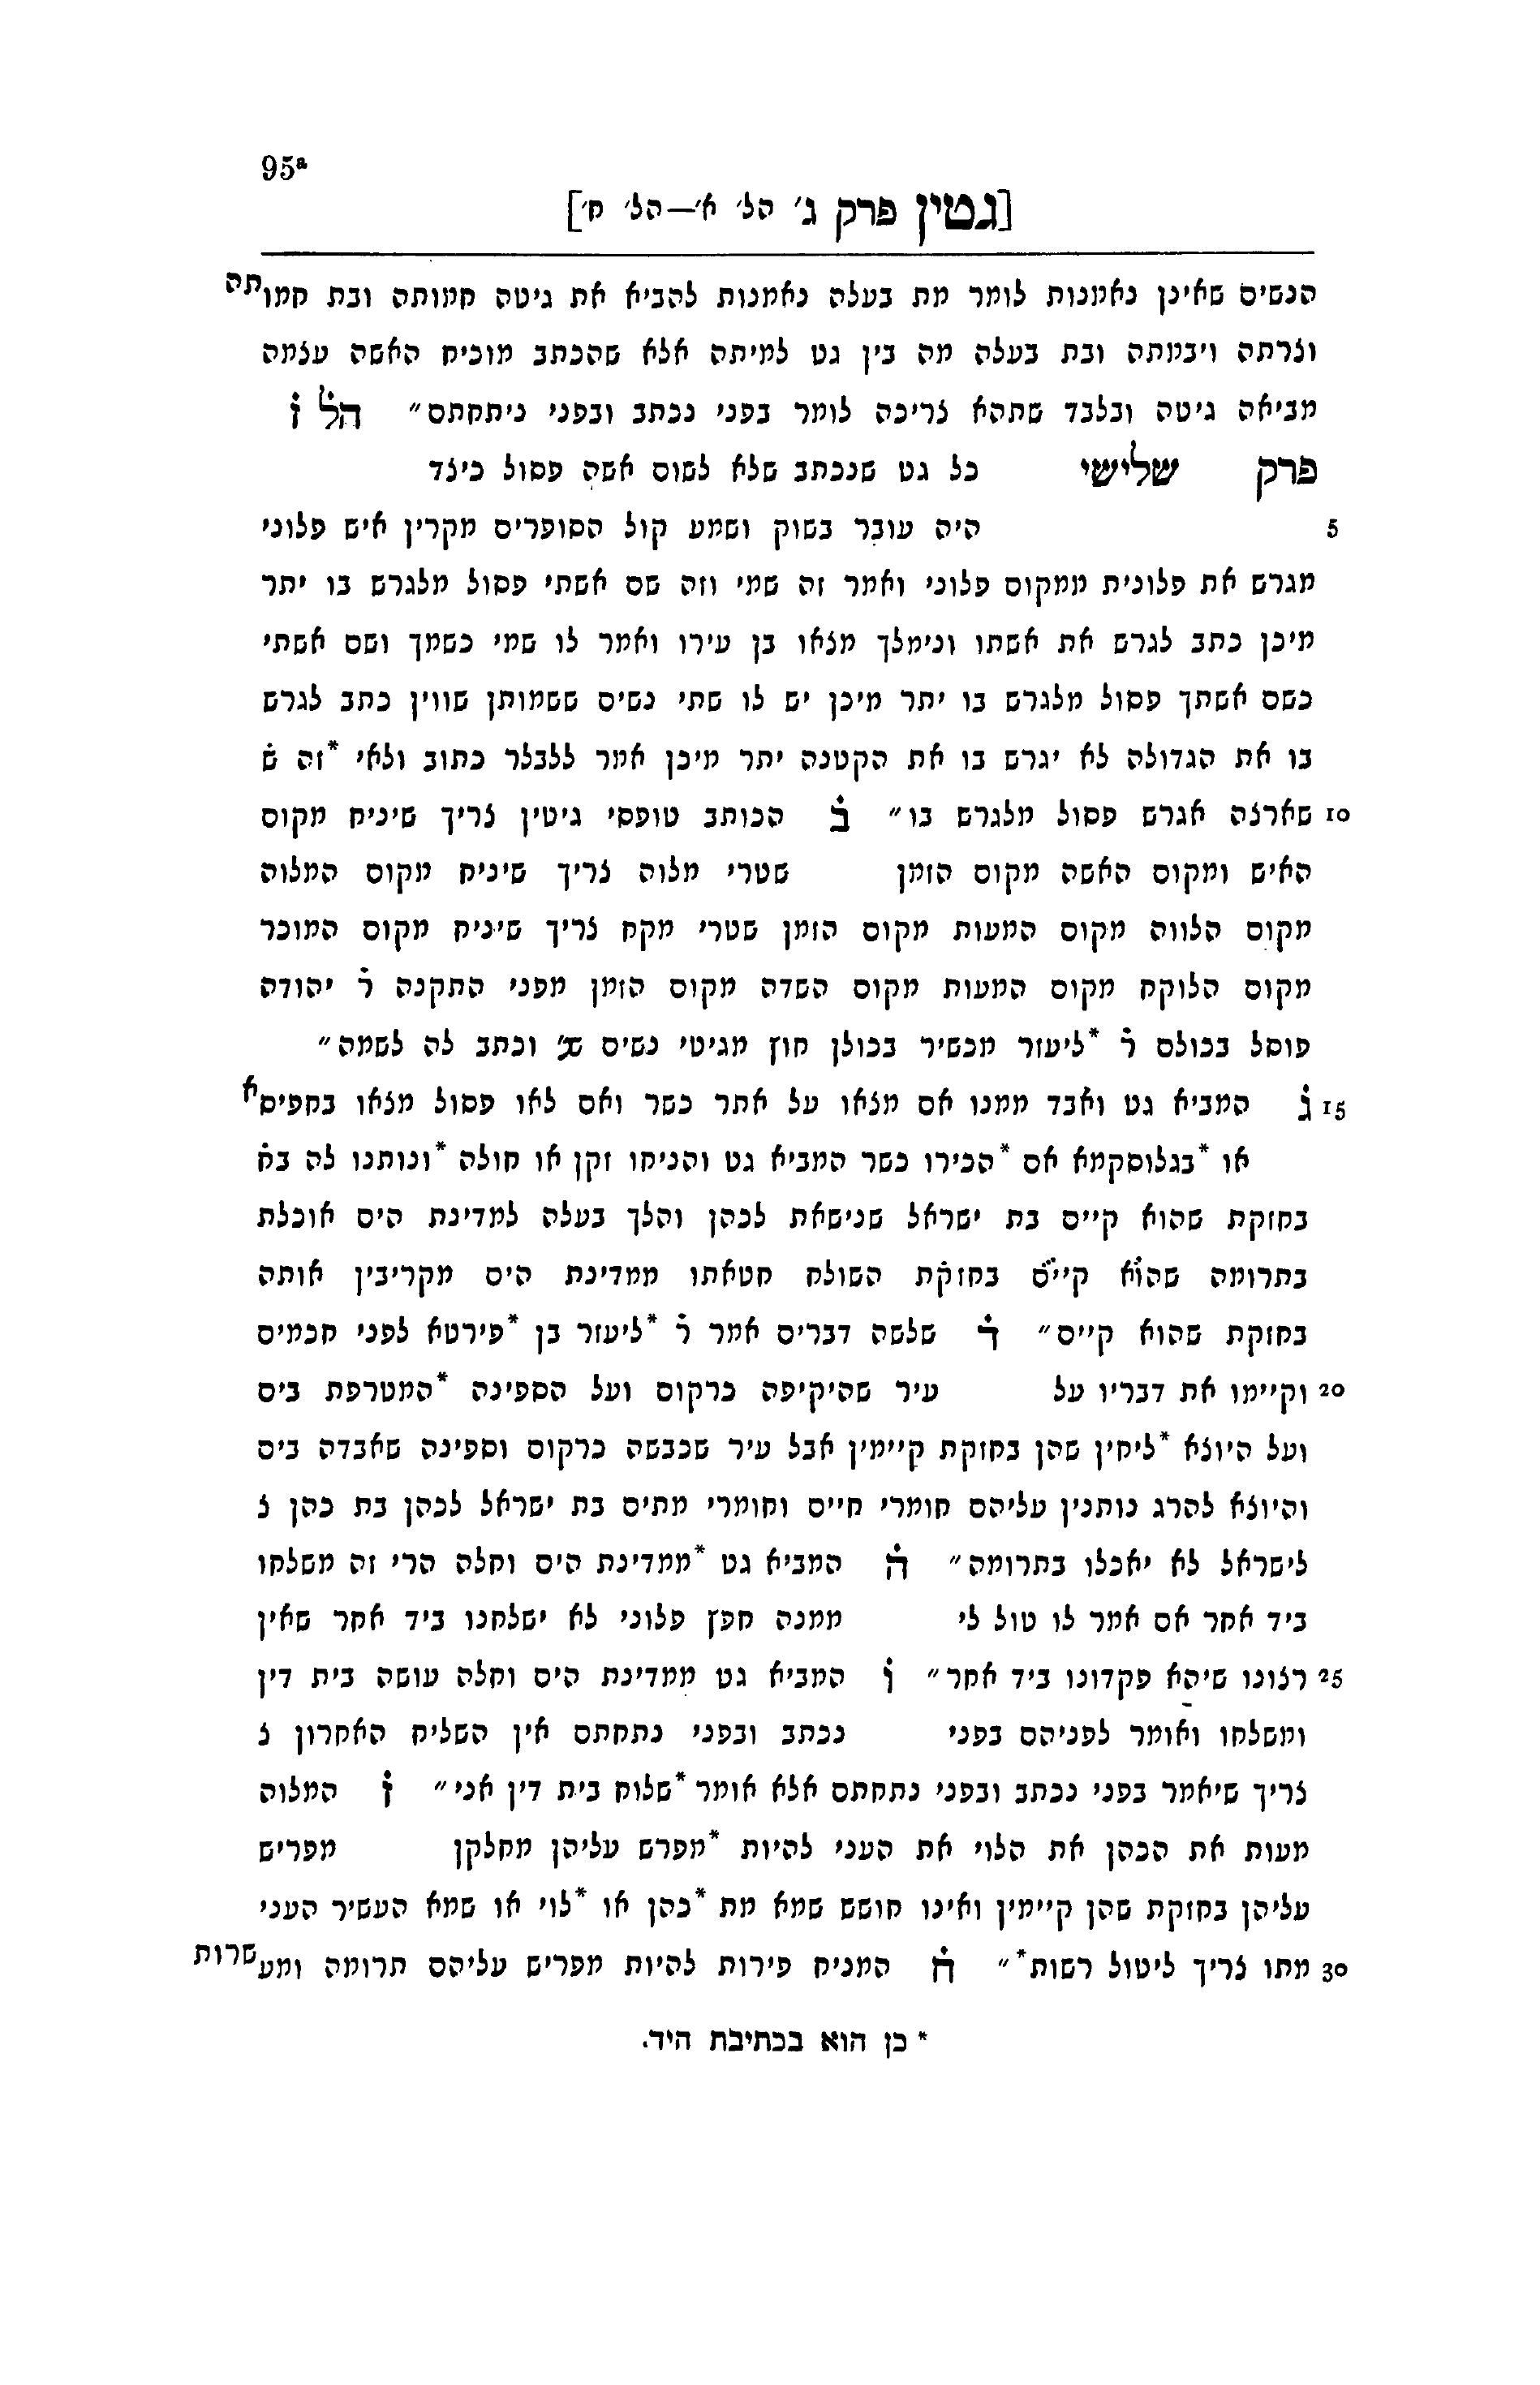 95ª
[גטין פרק ג׳ הל׳ א׳—הל׳ ח׳]
הנשים שאינן נאמנות לומר מת בעלה נאמנות להביא את גיטה חמותה ובת חמותה
וצרתה ויבמתה ובת בעלה מה בין גט למיתה אלא שהכתב מוכיח האשה עצמה
מביאה גיטה ובלבד שתהא צריכה לומר בפני נכתב ובפני ניתחתם״ הל׳ ז̇
פרק שלישי כל גט שנכתב שלא לשום אשה פסול כיצד
5 היה עובר בשוק ושמע קול הסופרים מקרין איש פלוני
מגרש את פלונית ממקום פלוני ואמר זה שמי וזה שם אשתי פסול מלגרש בו יתר
מיכן כתב לגרש את אשתו ונימלך מצאו בן עירו ואמר לו שמי כשמך ושם אשתי
כשם אשתך פסול מלגרש בו יתר מיכן יש לו שתי נשים ששמותן שווין כתב לגרש
בו את הגדולה לא יגרש בו את הקטנה יתר מיכן אמר ללבלר כתוב ולאי *זה ש̇
10 שארצה אגרש פסול מלגרש בו״ ב̇ הכותב טופסי גיטין צריך שיניח מקום
האיש ומקום האשה מקום הזמן שטרי מלוה צריך שיניח מקום המלוה
מקום הלווה מקום המעות מקום הזמן שטרי מקח צריך שיניח מקום המוכר
מקום הלוקח מקום המעות מקום השדה מקום הזמן מפני התקנה ר̇ יהודה
פוסל בכולם ר̇ *ליעזר מכשיר בכולן חוץ מגיטי נשים שנ׳ וכתב לה לשמה״
15 ג̇ המביא גט ואבד ממנו אם מצאו על אתר כשר ואם לאו פסול מצאו בחפיסא
או *בגלוסקמא אם *הכירו כשר המביא גט והניחו זקן או חולה *ונותנו לה בח̇
בחזקת שהוא קיים בת ישראל שנישאת לכהן והלך בעלה למדינת הים אוכלת
בתרומה שהוא קיים בחזקת השולח חטאתו ממדינת הים מקריבין אותה
בחזקת שהוא קיים״ ד̇ שלשה דברים אמר ר̇ *ליעזר בן *פירטא לפני חכמים
20 וקיימו את דבריו על עיר שהיקיפה כרקום ועל הספינה *המטרפת בים
ועל היוצא *ליחין שהן בחזקת קיימין אבל עיר שכבשה כרקום וספינה שאבדה בים
והיוצא להרג נותנין עליהם חומרי חיים וחומרי מתים בת ישראל לכהן בת כהן ל
לישראל לא יאכלו בתרומה״ ה̇ המביא גט *ממדינת הים וחלה הרי זה משלחו
ביד אחר אם אמר לו טול לי ממנה חפץ פלוני לא ישלחנו ביד אחר שאין
25 רצונו שיהא פקדונו ביד אחר״ ו̇ המביא גט ממדינת הים וחלה עושה בית דין
ומשלחו ואומר לפניהם בפני נכתב ובפני נתחתם אין השליח האחרון צ
צריך שיאמר בפני נכתב ובפני נתחתם אלא אומר *שלוח בית דין אני״ ז̇ המלוה
מעות את הכהן את הלוי את העני להיות *מפרש עליהן מחלקן מפריש
עליהן בחזקת שהן קיימין ואינו חושש שמא מת *כהן או *לוי או שמא העשיר העני
30 מתו צריך ליטול רשות*״ ח̇ המניח פירות להיות מפריש עליהם תרומה ומעשרות
* כן הוא בכתיבת היד.